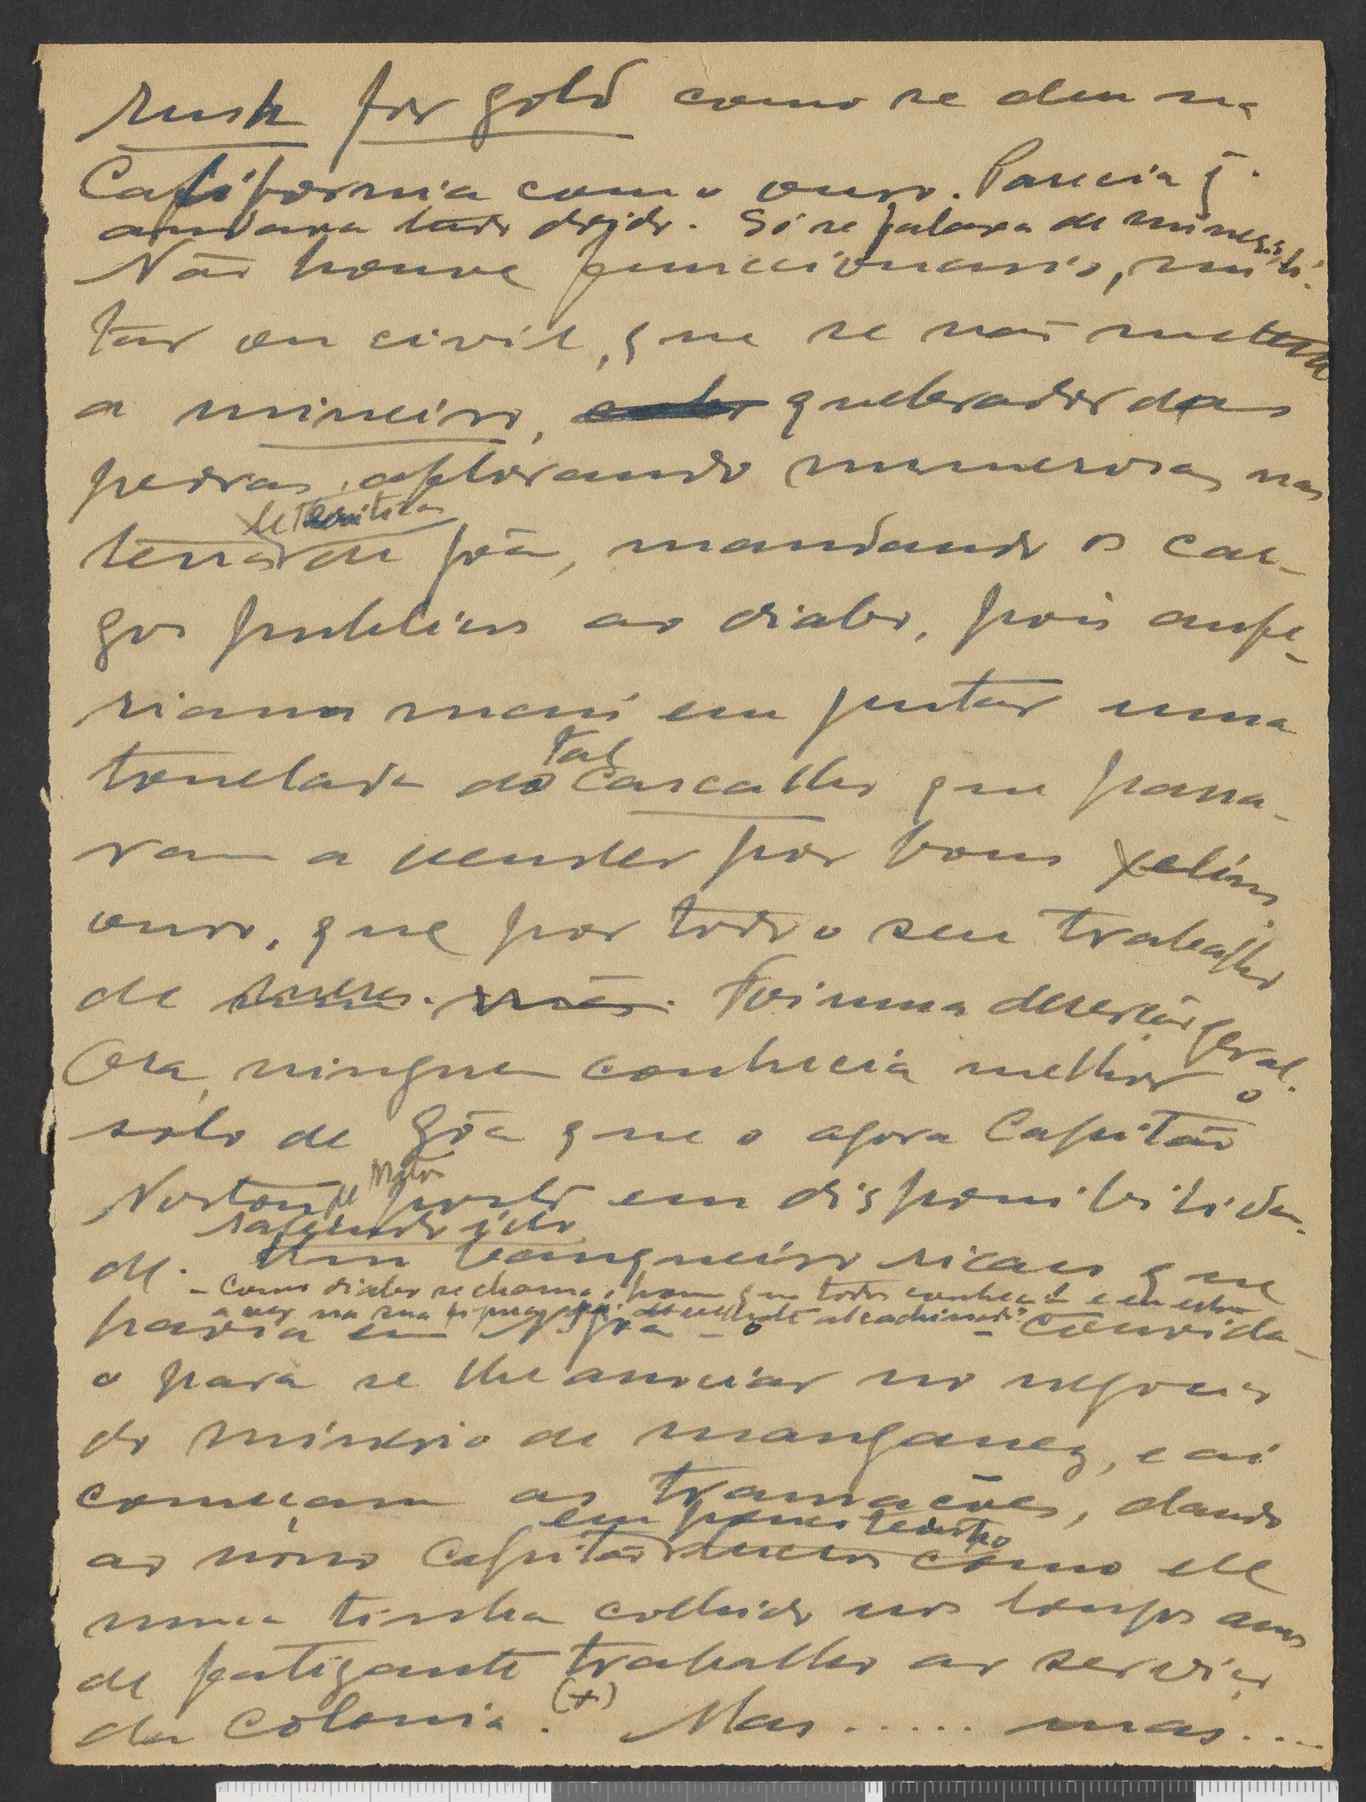 rush for gold como se deu na
California com o ouro. Parecia q.
andava tudo doido. Só se falava de minerios
Não houve funccionario, mili-
tar ou civil, que se não metesse
a mineiro, quebrador das
pedras, aflorando numerosas nas
terras de Gôa, mandando os car-
gos publicos ao diabo, pois aufe-
riam mais em juntar uma
tonelada do tal cascalho que passa-
ram a vender por bons xelins,
ouro, que por todo o seu trabalho
de Foi uma deserção geral.
Ora, ninguem conhecia melhor o
sólo de Gôa que o agora Capitão
Norton de Matos posto em disponibilida-
de. Um banqueiro ricaço que
- como diabo se chama, homem que todos conhecem
havia em Gôa - o - convida-
o para se lhe associar no negocio
do minerio de manganez, e aí
começam as transações, dando
em pouco tempo
ao nóvo Capitão como ele
nunca tinha colhido nos longos anos
de fatigante trabalho ao serviço
da Colonia. (+) Mas ..... mas ....